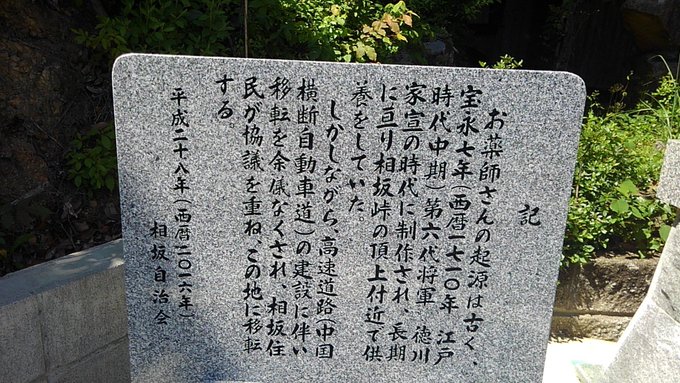 記
お薬師さんの起源は古く、
宝永七年(西暦一七一〇年 江戸
時代中期)第六代将軍 徳川
家宣の時代に制作され、長期
に亘り相坂峠の頂上付近で供
養をしていた。
しかしながら、高速道路(中国
横断自動車道)の建設に伴い
移転を余儀なくされ、相坂住
民が協議を重ね、この地に移転
する。
平成二十八年(西暦二〇一六年)
相坂自治会